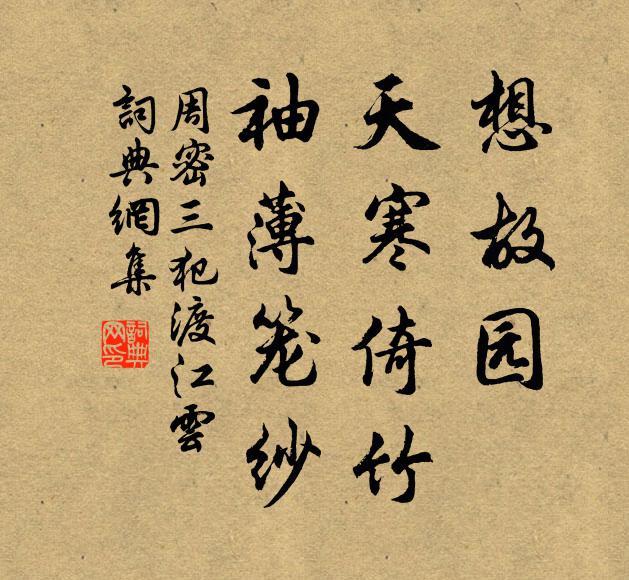 想故园
天寒倚竹
袖薄笼纱
周密三犯渡江雲
詞典網集
詞典
网印